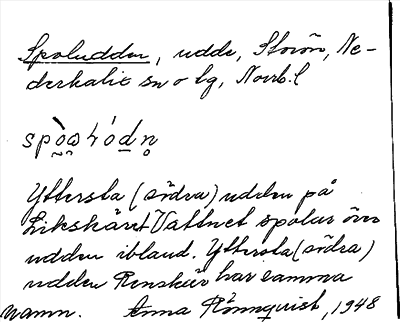 Spoludden, udde, Storön, Ne-
derkalix sn o lg, Norrb. l
Yttersta (södra) udden på
Likskäret Vattnet spolar över
udden ibland. Yttersta (södra)
udden Renskär har samma
namn. Anna Rönnquist, 1948